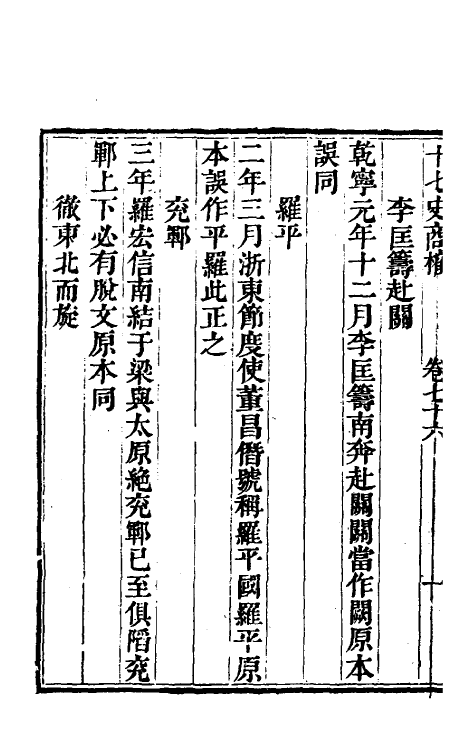 十七史商榷 卷七十六 十
李匡籌赴關
乾寧元年十二月李匡籌南奔赴關關當作闕原本
誤同
羅平
二年三月浙東節度使董昌僭號稱羅平國羅平原
本誤作平羅此正之
兗鄆
三年羅宏信南結于梁與太原絶兗鄆已至俱䧟兗
鄆上下必有脫文原本同
徹東北而旋